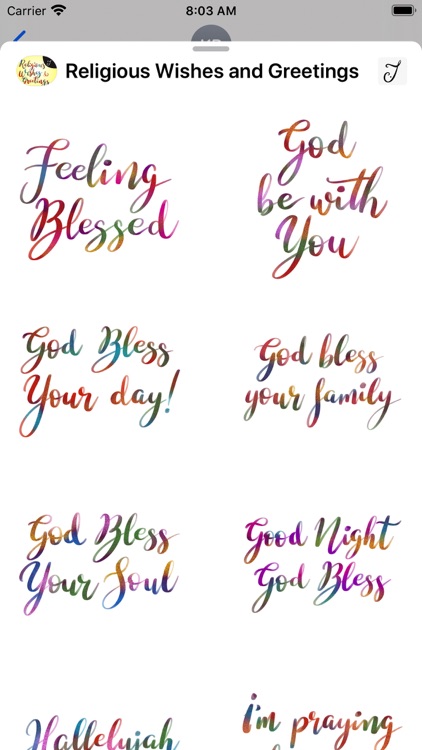 Carrier 8:03 AM
Religious Wishes and Greetings
Feeling
Blessed
God
be with
You
God Bless
Your day!
God bless
your family
God Bless
Your Soul
Good Night
God Bless
Hallelujah
I'm praying